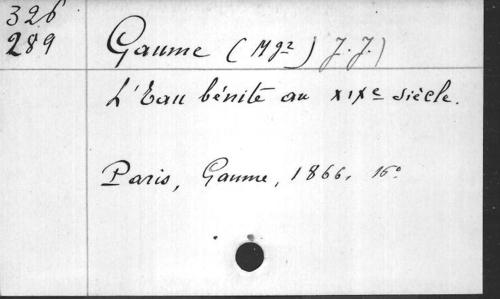 326
289
Gaume (Mgr) J. J.)
L'Eau bénite au XIXe siècle.
Paris, Gaume, 1866. 16°